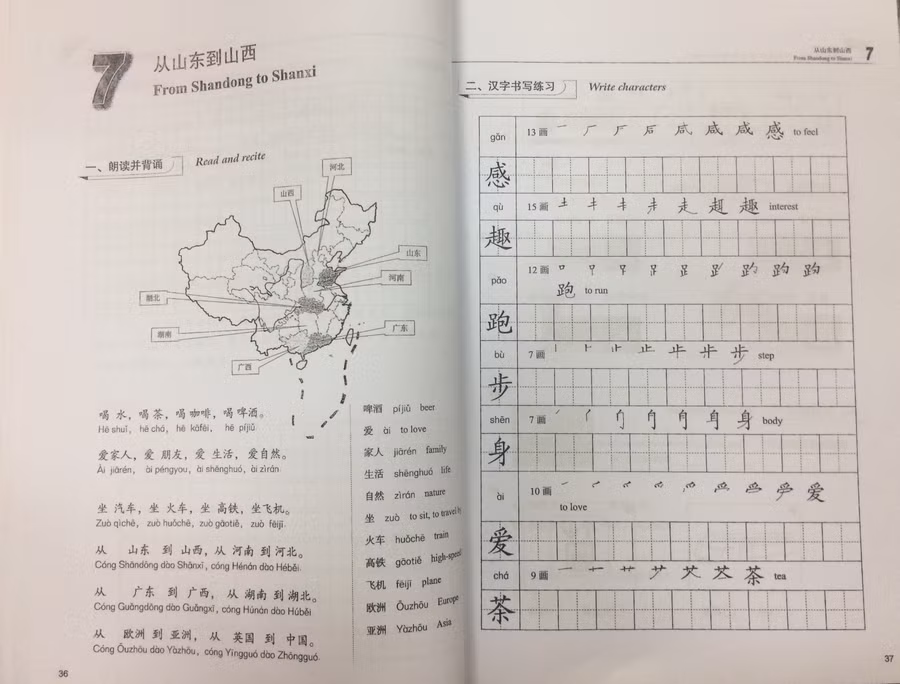 7
从山东到山西
From Shandong to Shanxi
一、朗读并背诵 Read and recite
河北
山西
山东
河南
湖北
湖南
广东
广西
喝 水，喝 茶，喝 咖啡，喝 啤酒。
Hē shuǐ, hē chá, hē kāfēi, hē píjiǔ.
爱家人，爱 朋友，爱 生活，爱自然。
Ài jiārén, ài péngyou, ài shēnghuó, ài zìrán.
坐 汽车，坐 火车，坐 高铁，坐飞机。
Zuò qìchē, zuò huǒchē, zuò gāotiě, zuò fēijī.
从 山东 到 山西，从 河南 到 河北。
Cóng Shāndōng dào Shānxī, cóng Hénán dào Héběi.
从 广东 到 广西，从 湖南 到 湖北。
Cóng Guǎngdōng dào Guǎngxī, cóng Húnán dào Húběi
从 欧洲 到 亚洲，从 英国 到 中国。
Cóng Ōuzhōu dào Yàzhōu, cóng Yīngguó dào Zhōngguó.
啤酒 píjiǔ beer
爱 ài to love
家人 jiārén family
生活 shēnghuó life
自然 zìrán nature
坐 zuò to sit, to travel by
火车 huǒchē train
高铁 gāotiě
飞机 fēijī plane
欧洲 Ōuzhōu Europe
亚洲 Yàzhōu Asia
36
从山东到山西 7
From Shandong to Shanxi
二、汉字书写练习 Write characters
gǎn 13 画 to feel
感
qù 15 画 interest
趣
pǎo 12 画
to run
跑
bù 7 画 step
步
shēn 7 画 body
身
ài 10 画
to love
爱
chá 9 画 tea
茶
37